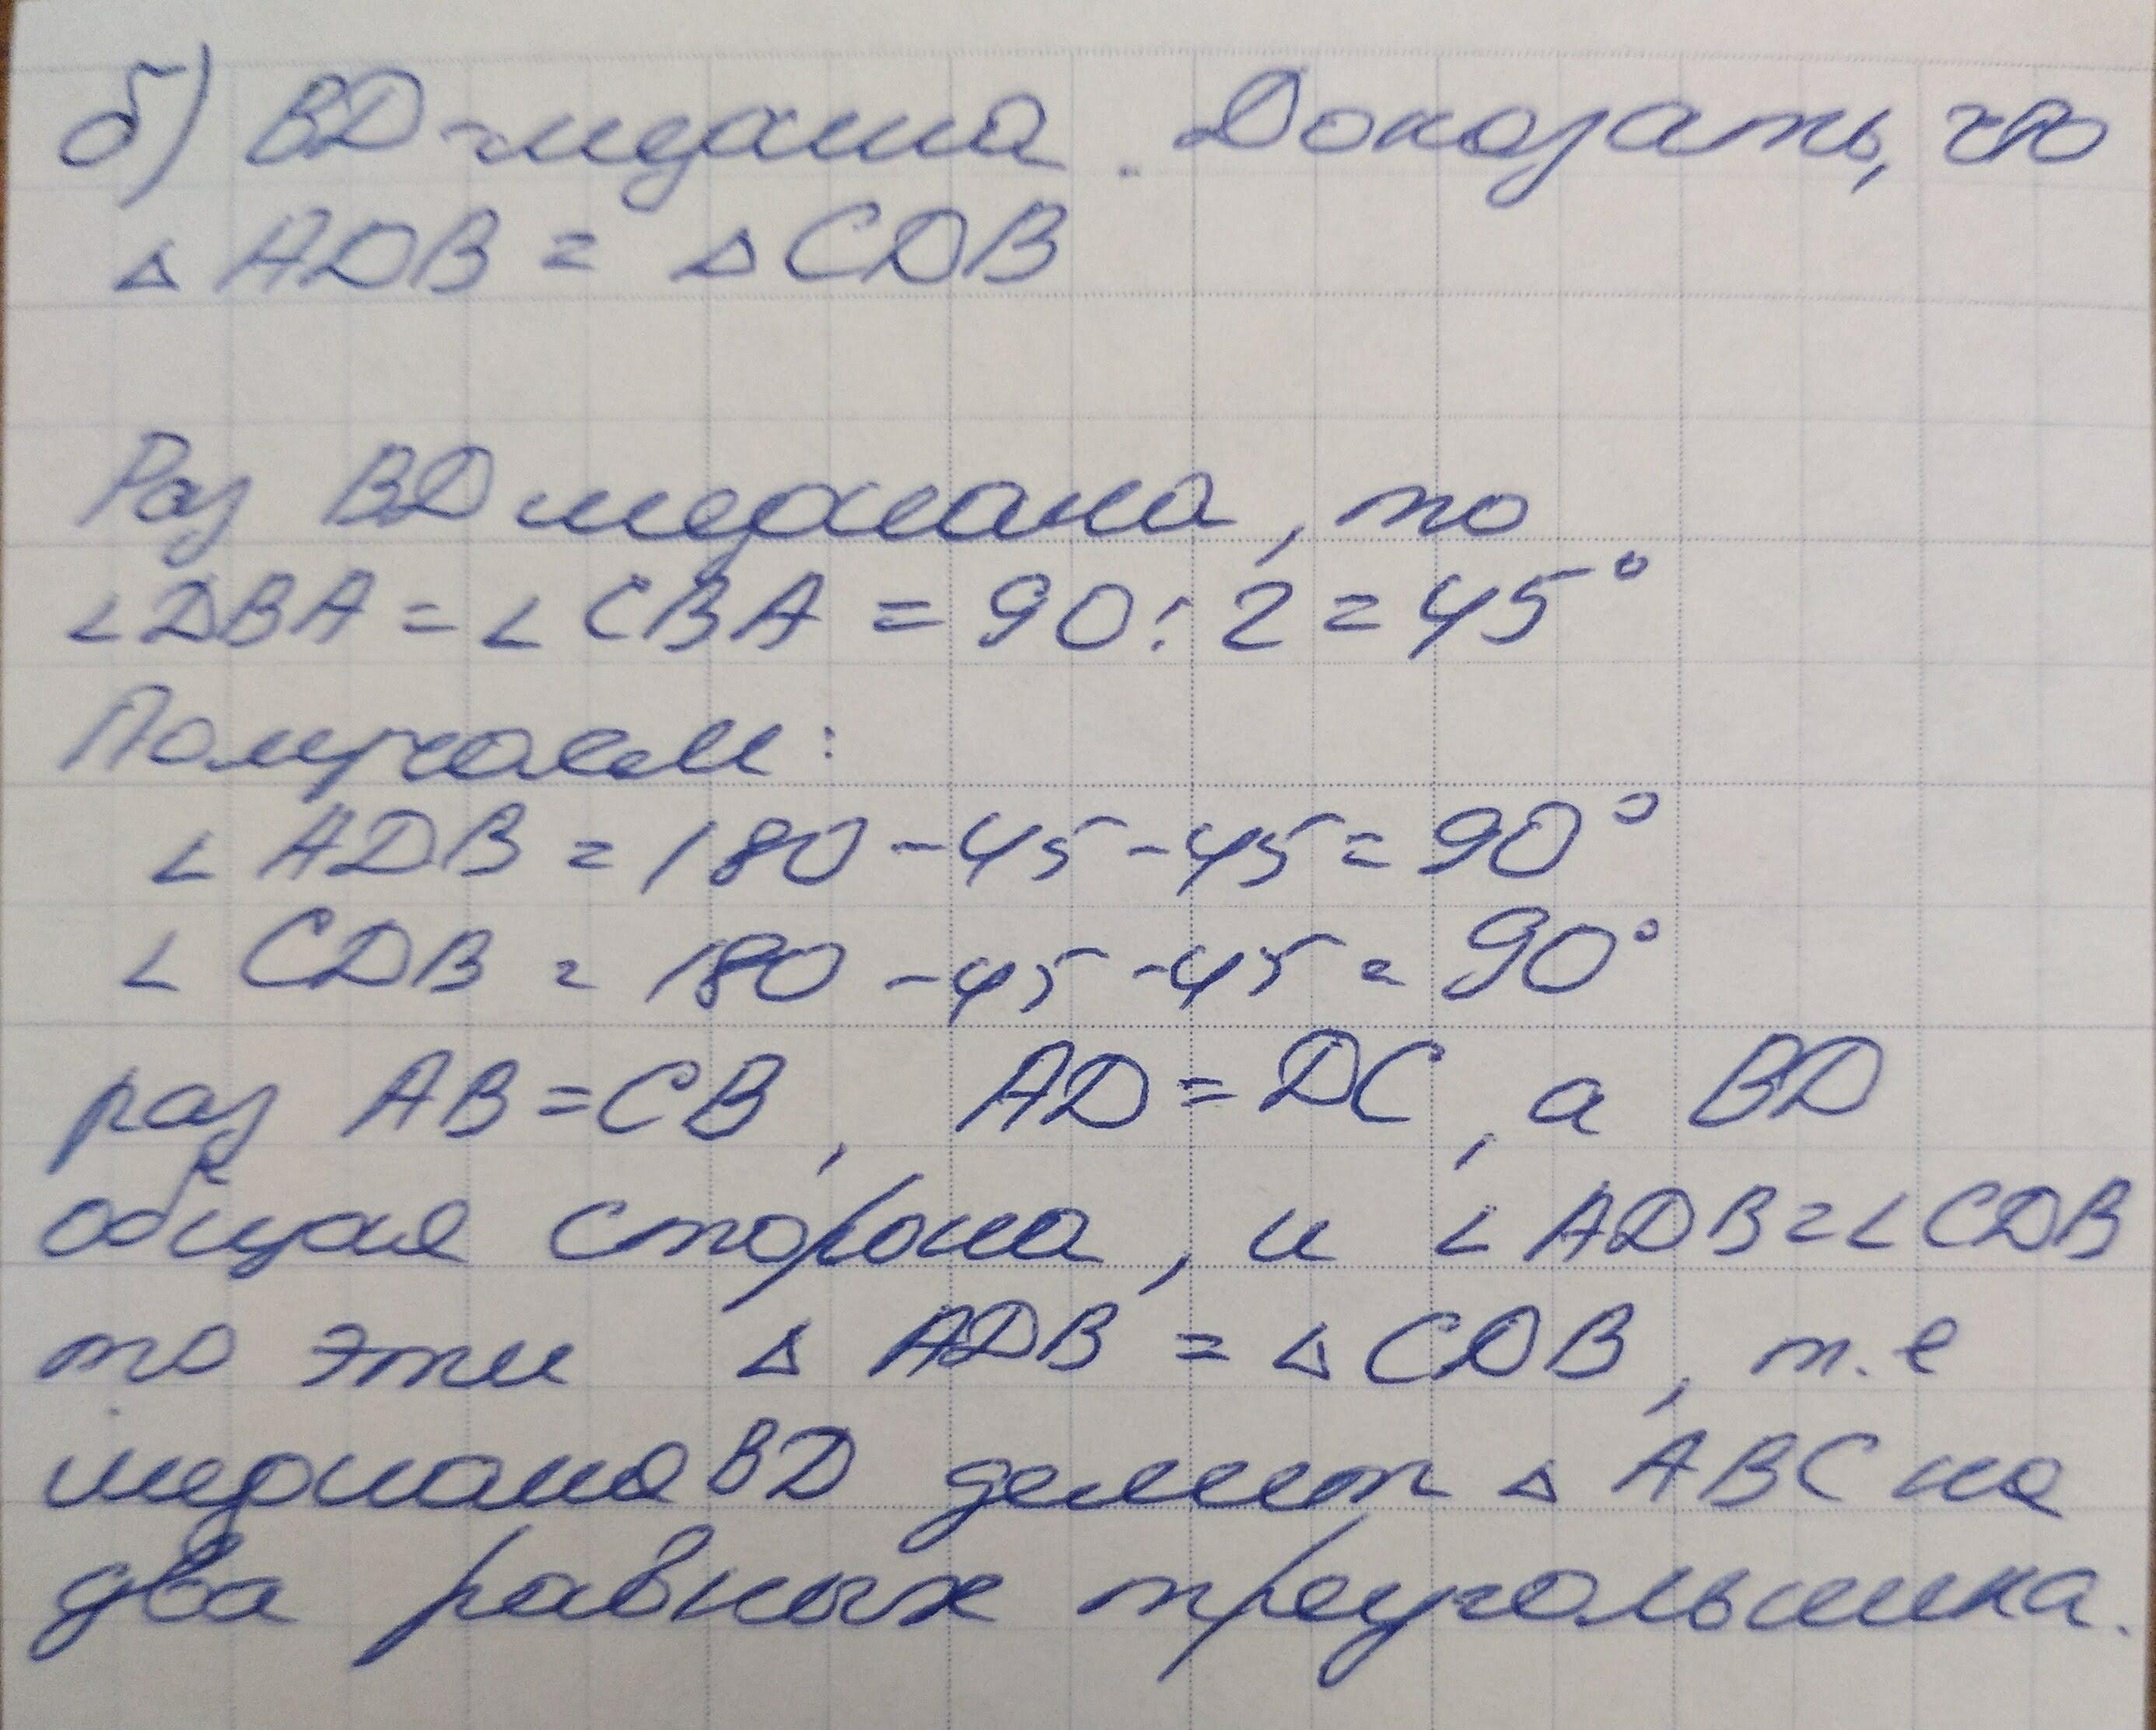 б) BD - медиана. Доказать, что
△ ADB = △ CDB
Раз BD медиана, то
∠DBA = ∠ CBA = 90 : 2 = 45°
Получаем:
∠ ADB = 180 - 45 - 45 = 90°
∠ CDB = 180 - 45 - 45 = 90°
раз AB = CB, AD = DC, а BD
общая сторона, и ∠ ADB = ∠ CDB
то эти △ ADB = △ CDB, т.е
медиана BD делит △ ABC на
два равных треугольника.